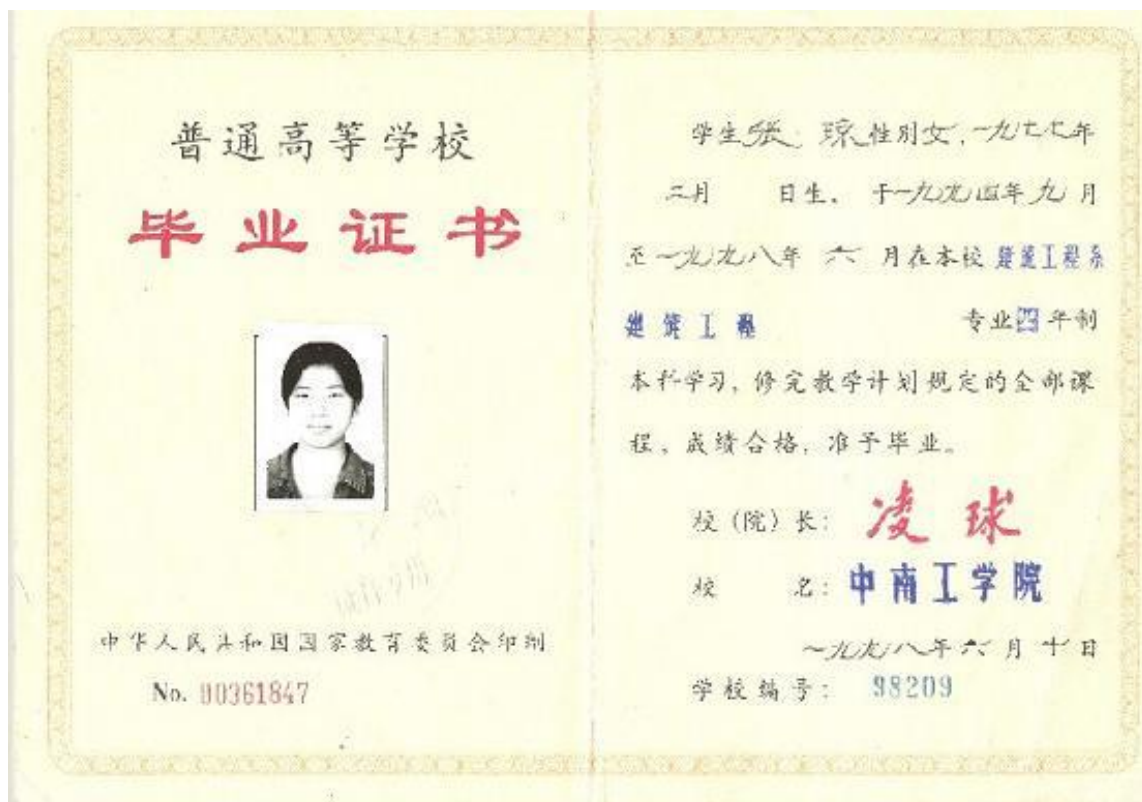 普通高等学校
毕业证书
中华人民共和国国家教育委员会印制
No. 00361847
学生张 琼性别女,一九七七年
二月 日生, 于一九九四年九月
至一九九八年 六 月在本校 建筑工程系
建筑工程 专业四年制
本科学习,修完教学计划规定的全部课
程,成绩合格,准予毕业。
校(院)长: 凌球
校 名: 中南工学院
一九九八年六月十日
学校编号: 98209